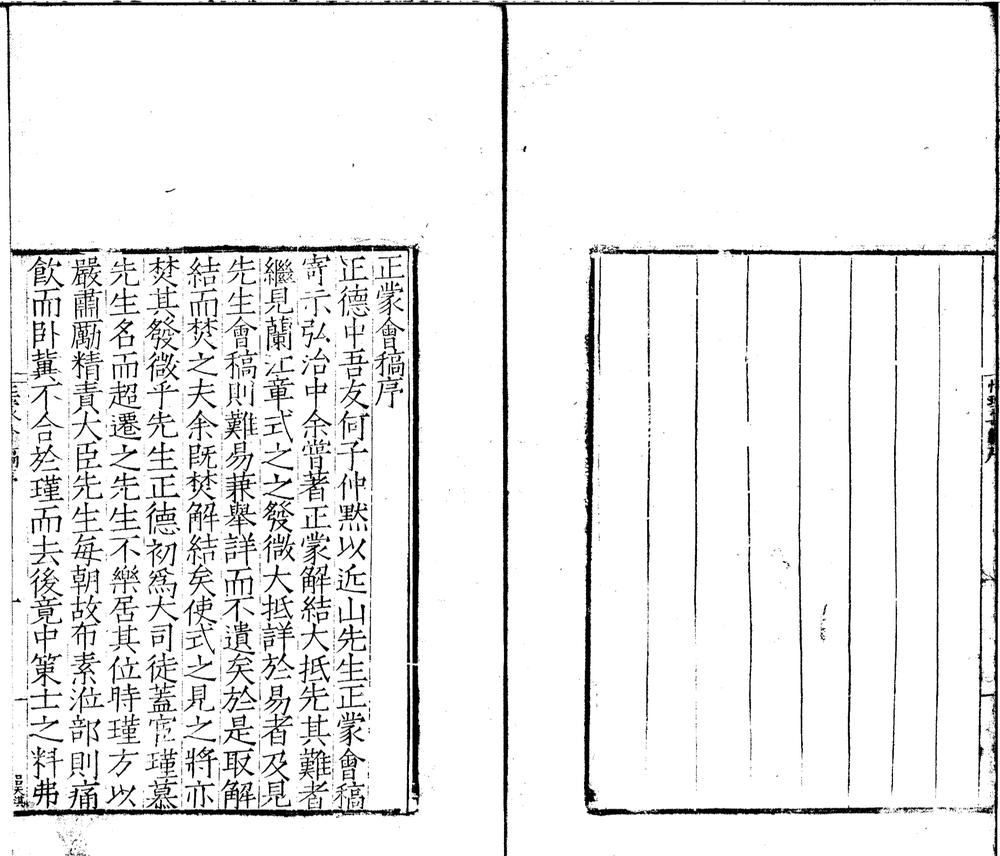 正蒙會稿序
正德中吾友何子仲默以近山先生正蒙會稿
寄示弘治中余嘗著正蒙解結大抵先其難者
繼見蘭江章式之之發微大抵詳於易者及見
先生會稿則難易兼舉詳而不遺矣於是取解
結而焚之夫余既焚解結矣使式之見之將亦
焚其發微乎先生正德初爲大司徒蓋宦瑾慕
先生名而超遷之先生不樂居其位時瑾方以
嚴肅厲精責大臣先生每朝故布素涖部則痛
飲而卧冀不合於瑾而去後竟中策士之料弗